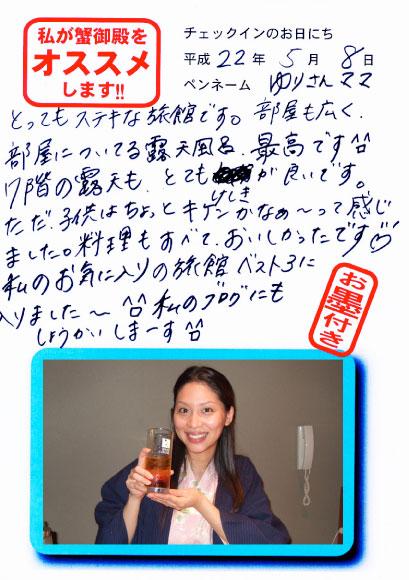 私が蟹御殿を
オススメ
します!!
チェックインのお日にち
平成 22 年 5 月 8 日
ペンネーム ゆりさんママ
とってもステキな旅館です。部屋も広く、
部屋についてる露天風呂、最高です^^
7階の露天も、とても けしき が良いです。
ただ、子供はちょっとキケンかなぁ〜って感じ
ました。料理もすべて、おいしかったです♡
私のお気に入りの旅館ベスト3に
入りました〜 ^^ 私のブログにも
しょうかいしまーす^^
お墨付き